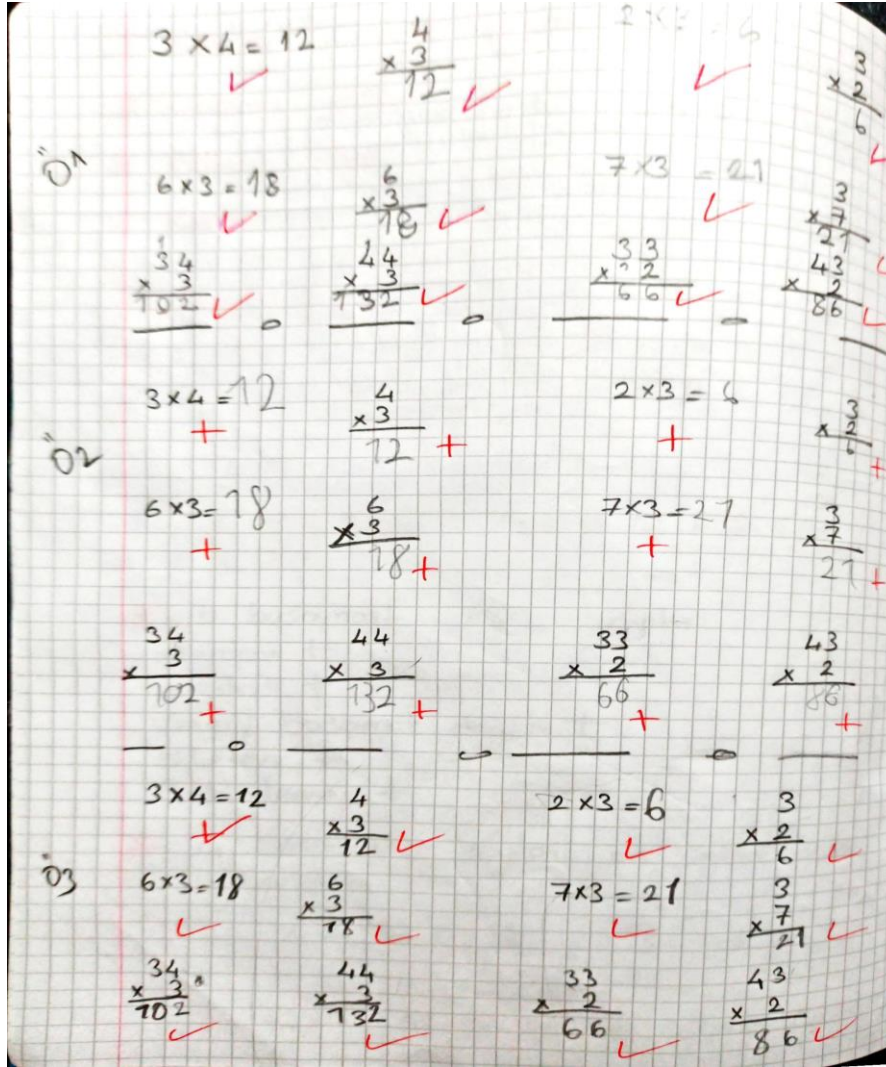 3 × 4 = 12    4 × 3 = 12    2 × 3 = 6    3 × 2 = 6
Ö1
6 × 3 = 18    6 × 3 = 18    7 × 3 = 21    3 × 7 = 21
34 × 3 = 102    44 × 3 = 132    33 × 2 = 66    43 × 2 = 86
3 × 4 = 12    4 × 3 = 12    2 × 3 = 6    3 × 2 = 6
Ö2
6 × 3 = 18    6 × 3 = 18    7 × 3 = 21    3 × 7 = 21
34 × 3 = 102    44 × 3 = 132    33 × 2 = 66    43 × 2 = 86
3 × 4 = 12    4 × 3 = 12    2 × 3 = 6    3 × 2 = 6
Ö3
6 × 3 = 18    6 × 3 = 18    7 × 3 = 21    3 × 7 = 21
34 × 3 = 102    44 × 3 = 132    33 × 2 = 66    43 × 2 = 86